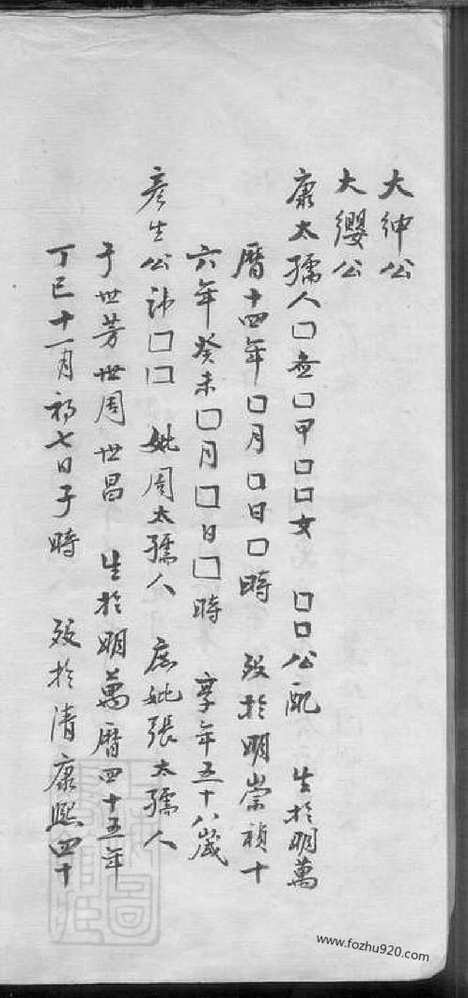 大紳公
大纓公
康太孺人□□甲□□女 □□公配 生於明萬
曆十四年□月□日□時 歿於明崇禎十
六年癸未□月□日□時 享年五十八歲
彥生公諱□□ 妣周太孺人 庶妣張太孺人
子世芳世周世昌 生於明萬曆四十五年
丁巳十一月初七日子時 歿於清康熙四十
www.fozhu920.com